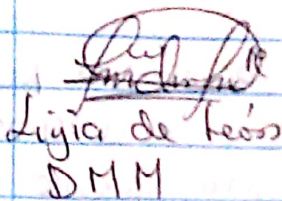 Ligia de León
DMM